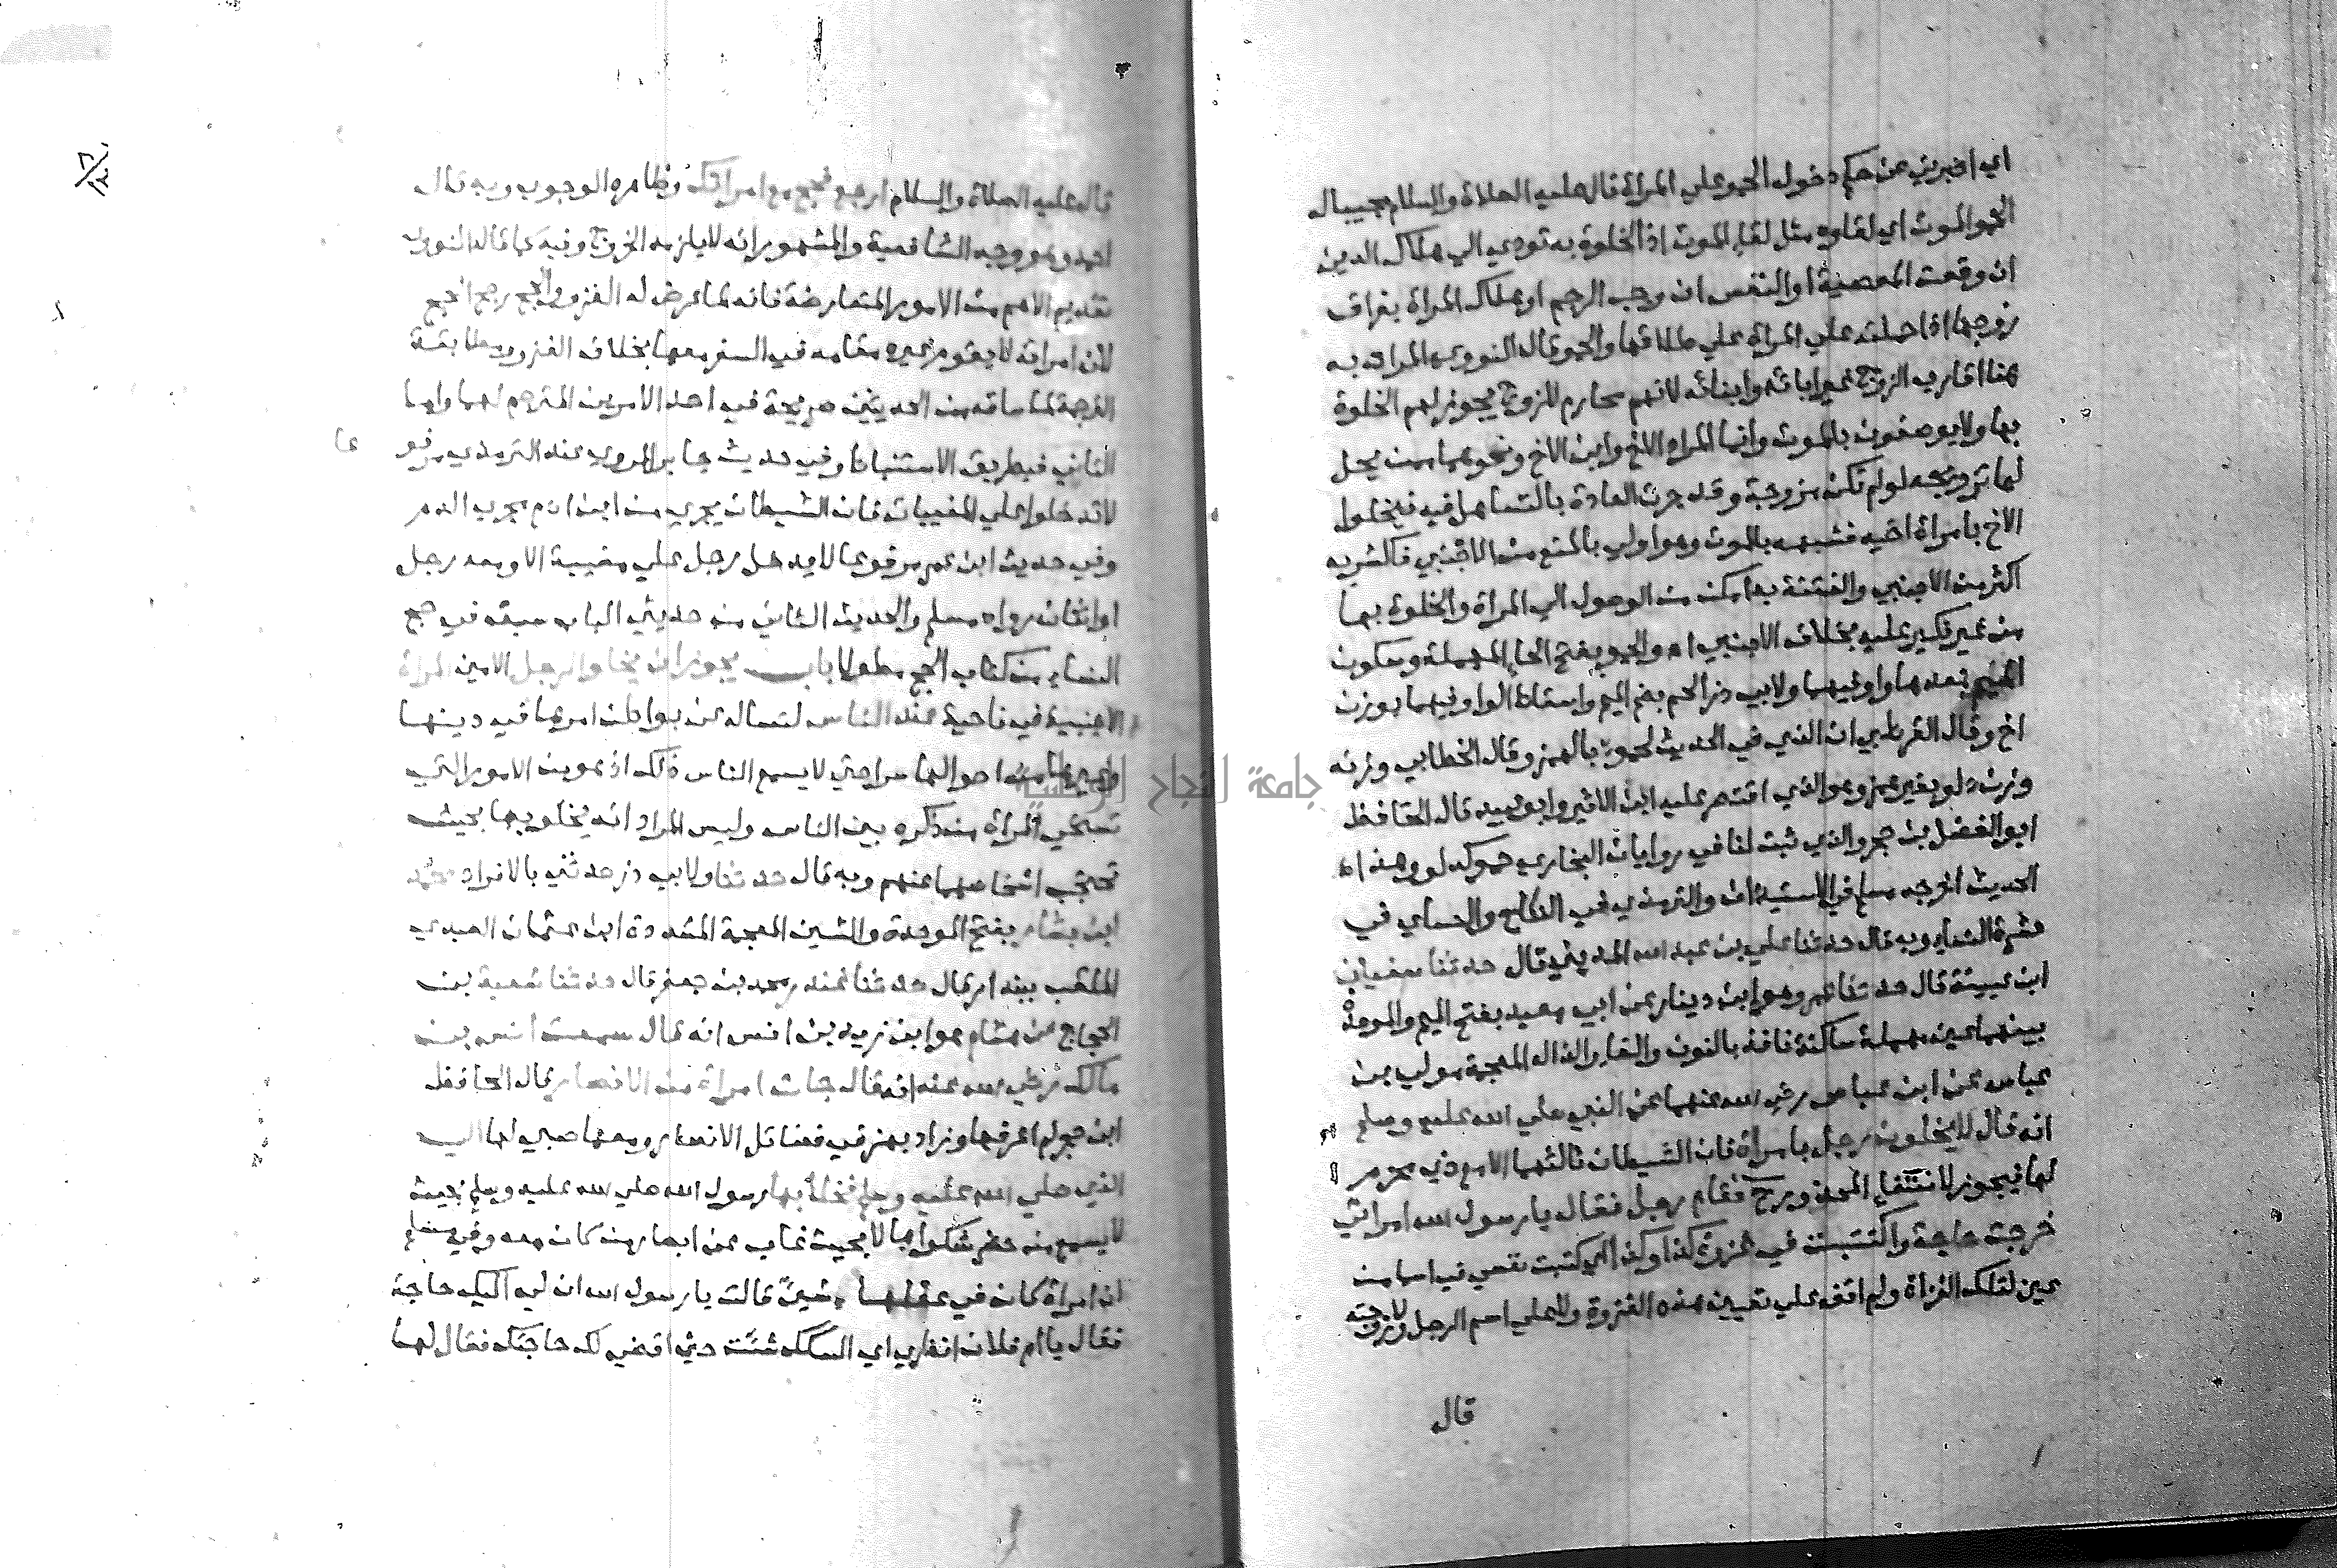 اي اخبرني عن حكم دخول الحمو علي المراة قال عليه الصلاة والسلام مجيبا له
الحمو الموت اي لقاوه مثل لقاء الموت اذ الخلوة به تودي الي هلاك الدين
ان وقعت المعصية او النفس ان وجب الرجم او هلاك المراة بفراق
زوجها اذا حملته علي المراة علي طلاقها والحمو قال النووي المراد به
هنا اقارب الزوج غير ابائه وابنائه لانهم محارم للزوج يجوز لهم الخلوة
بها ولا يوصفون بالموت وانما المراد الاخ وابن الاخ ونحوهما ممن يحل
لها تزويجه لو لم تكن مزوجة وقد جرت العادة بالتساهل فيه فيخلوا
الاخ بامراة اخيه فشبهه بالموت وهو اولي بالمنع من الاجنبي فالشر به
اكثر من الاجنبي والفتنة به امكن من الوصول الي المراة والخلوة بها
من غير نكير عليه بخلاف الاجنبي اه والحمو بفتح الحاء المهملة وسكون
الميم بعدها واو فيهما ولابي ذر الحم بضم الميم واسقاط الواو فيهما بوزن
اخ وقال القرطبي ان الذي في الحديث لحموء بالهمز وقال الخطابي وزنه
وزن دلو بغير همز وهو الذي اقتصر عليه ابن الاثير وابو عبيد قال الحافظ
ابو الفضل بن حجر والذي ثبت لنا في روايات البخاري حمو كدلو وهذا
الحديث اخرجه مسلم في الاستيذان والترمذي في النكاح والنساي في
عشرة النساء وبه قال حدثنا علي بن عبد الله المديني قال حدثنا سفيان
ابن عيينة قال حدثنا عمرو هو ابن دينار عن ابي معبد بفتح الميم والموحدة
بينهما عين مهملة ساكنة نافذ بالنون والفاء والذال المعجمة مولي بن
عباس عن ابن عباس رضي الله عنهما عن النبي صلي الله عليه وسلم
انه قال لا يخلون رجل بامراة فان الشيطان ثالثهما الا مع ذي محرم
لها فيجوز لانتفاء المحذور ح فقام رجل فقال يا رسول الله امراتي
خرجت حاجة واكتتبت في غزوة كذا وكذا اي كتبت نفسي في اسما من
عين لتلك الغزاة ولم اقف علي تعيين هذه الغزوة ولا علي اسم الرجل ولا زوجته
قال
قال عليه الصلاة والسلام ارجع فحج مع امراتك وظاهره الوجوب وبه قال
احمد وهو وجه الشافعية والمشهور انه لا يلزمه الخروج وفيه كما قال النووي
تقديم الاهم من الامور المتعارضة فانه لما عرض له الغزو والحج رجح الحج
لان امراته لا يقوم غيره مقامه في السفر معها بخلاف الغزو ومطابقة
الترجمة لما ساقه من الحديثين صريحة في احد الامرين المترجم لهما واما
الثاني فبطريق الاستنباط وفي حديث جابر المروي عند الترمذي مرفو
عا
لا تدخلوا علي المغيبات فان الشيطان يجري من ابن ادم مجري الدم
وفي حديث ابن عمر مرفوعا لا يدخل رجل علي مغيبة الا ومعه رجل
او اثنان رواه مسلم والحديث الثاني من حديثي الباب سبق في حج
النساء من كتاب الحج مطولا باب يجوز ان يخلو الرجل الامين المراة
الاجنبية في ناحية عند الناس لتساله عن بواطن امرها في دينها
وغيرها من احوالها سرا حتي لا يسمع الناس ذلك اذ هو من الامور التي
تستحي المراة من ذكره بين الناس وليس المراد انه يخلو بها بحيث
تحتجب اشخاصهما عنهم وبه قال حدثنا ولابي ذر حدثني بالافراد محمد
ابن بشار بفتح الموحدة والشين المعجمة المشددة ابن عثمان العبدي
الملقب ببندار قال حدثنا غندر محمد بن جعفر قال حدثنا شعبة بن
الحجاج عن هشام هو ابن زيد بن انس انه قال سمعت انس بن
مالك رضي الله عنه انه قال جات امراة من الانصار قال الحافظ
ابن حجر لم اعرفها وزاد بهز في فضائل الانصار ومعها صبي لها الي
النبي صلي الله عليه وسلم فخلا بها رسول الله صلي الله عليه وسلم بحيث
لا يسمع من حضر شكواها لا بحيث غاب عن ابصار من كان معه وفي مسلم
ان امراة كان في عقلها شيء قالت يا رسول الله ان لي اليك حاجة
فقال يا ام فلان انظري اي السكك شئت حتي اقضي لك حاجتك فقال لها
جامعة النجاح الوطنية